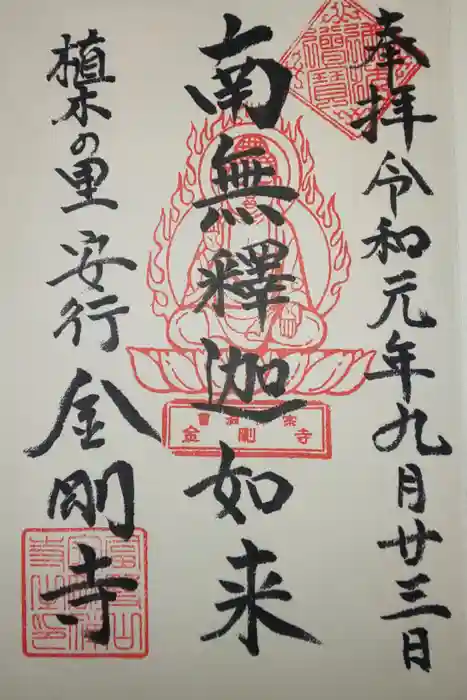 奉拝 令和元年九月廿三日
南無釋迦如来
曹洞宗
金剛寺
植木の里 安行 金剛寺